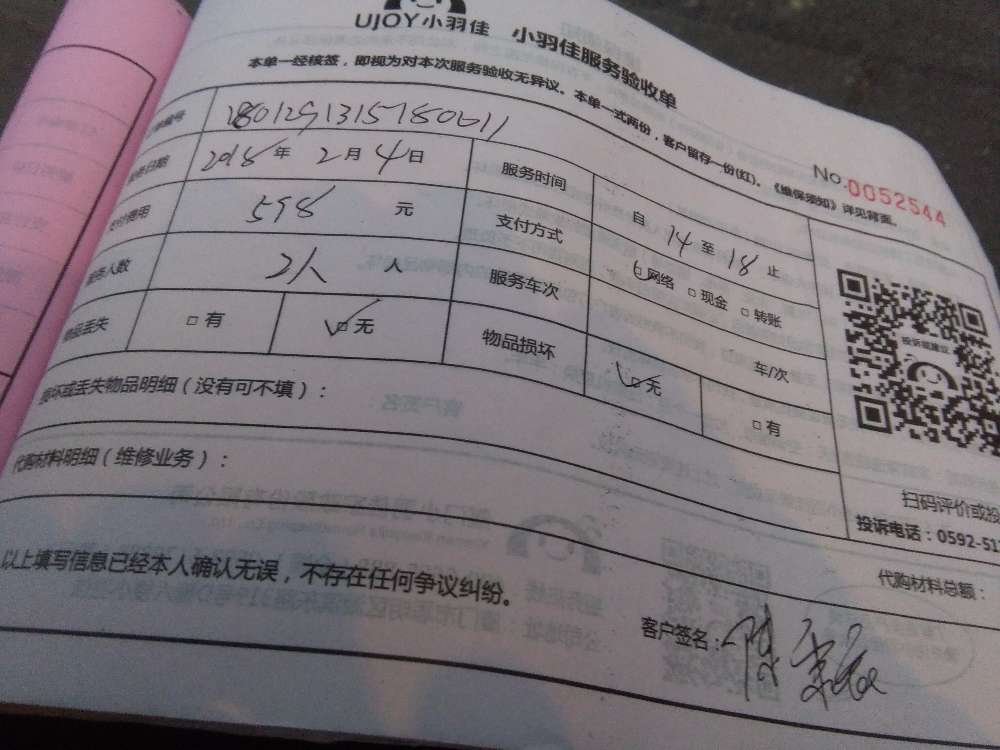 UJOY小羽佳 小羽佳服务验收单
本单一经核签，即视为对本次服务验收无异议。本单一式两份，客户留存一份(红)。《维保须知》详见背面。
No.0052544
编号 1801291315780011
日期 2018年 2月 4日 服务时间 自 14 至 18 止
费用 598 元 支付方式 □网络 □现金 □转账
人数 2人 人 服务车次 车/次
物品丢失 □有 □无 物品损坏 □无 □有
投诉或建议
坏或丢失物品明细（没有可不填）：
代购材料明细（维修业务）：
扫码评价或投
投诉电话：0592-51
代购材料总额：
以上填写信息已经本人确认无误，不存在任何争议纠纷。
客户签名：陈